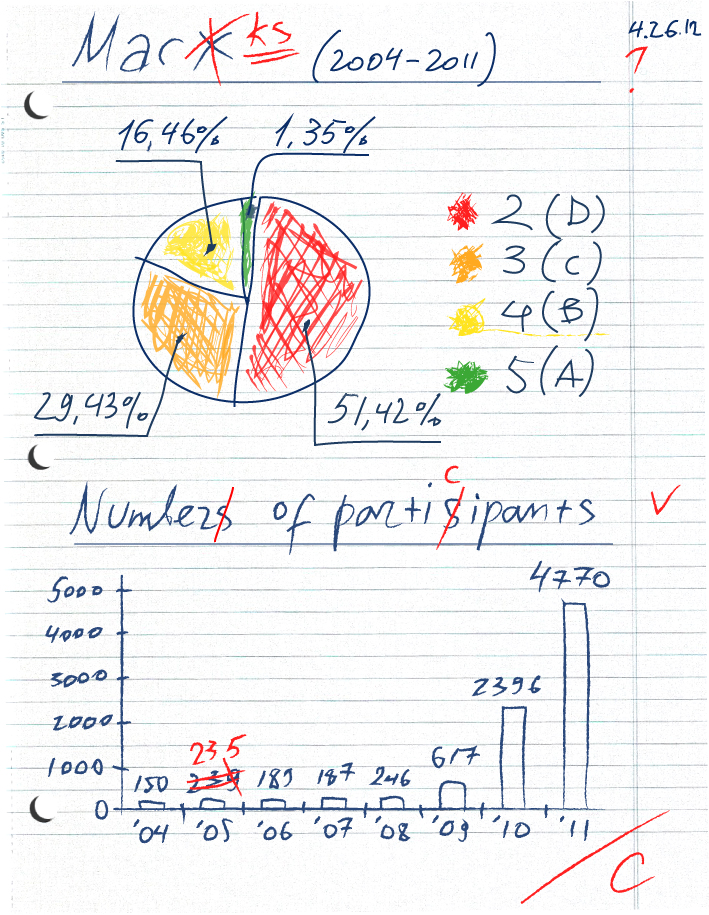 Marx ks (2004-2011)
4.26.12
?
16,46% 1,35%
2 (D)
3 (C)
4 (B)
5 (A)
29,43% 51,42%
c
Numbers of partisipants
5000
4000
3000
2000
1000
0
4770
2396
617
235
150 239 189 187 246
'04 '05 '06 '07 '08 '09 '10 '11
C